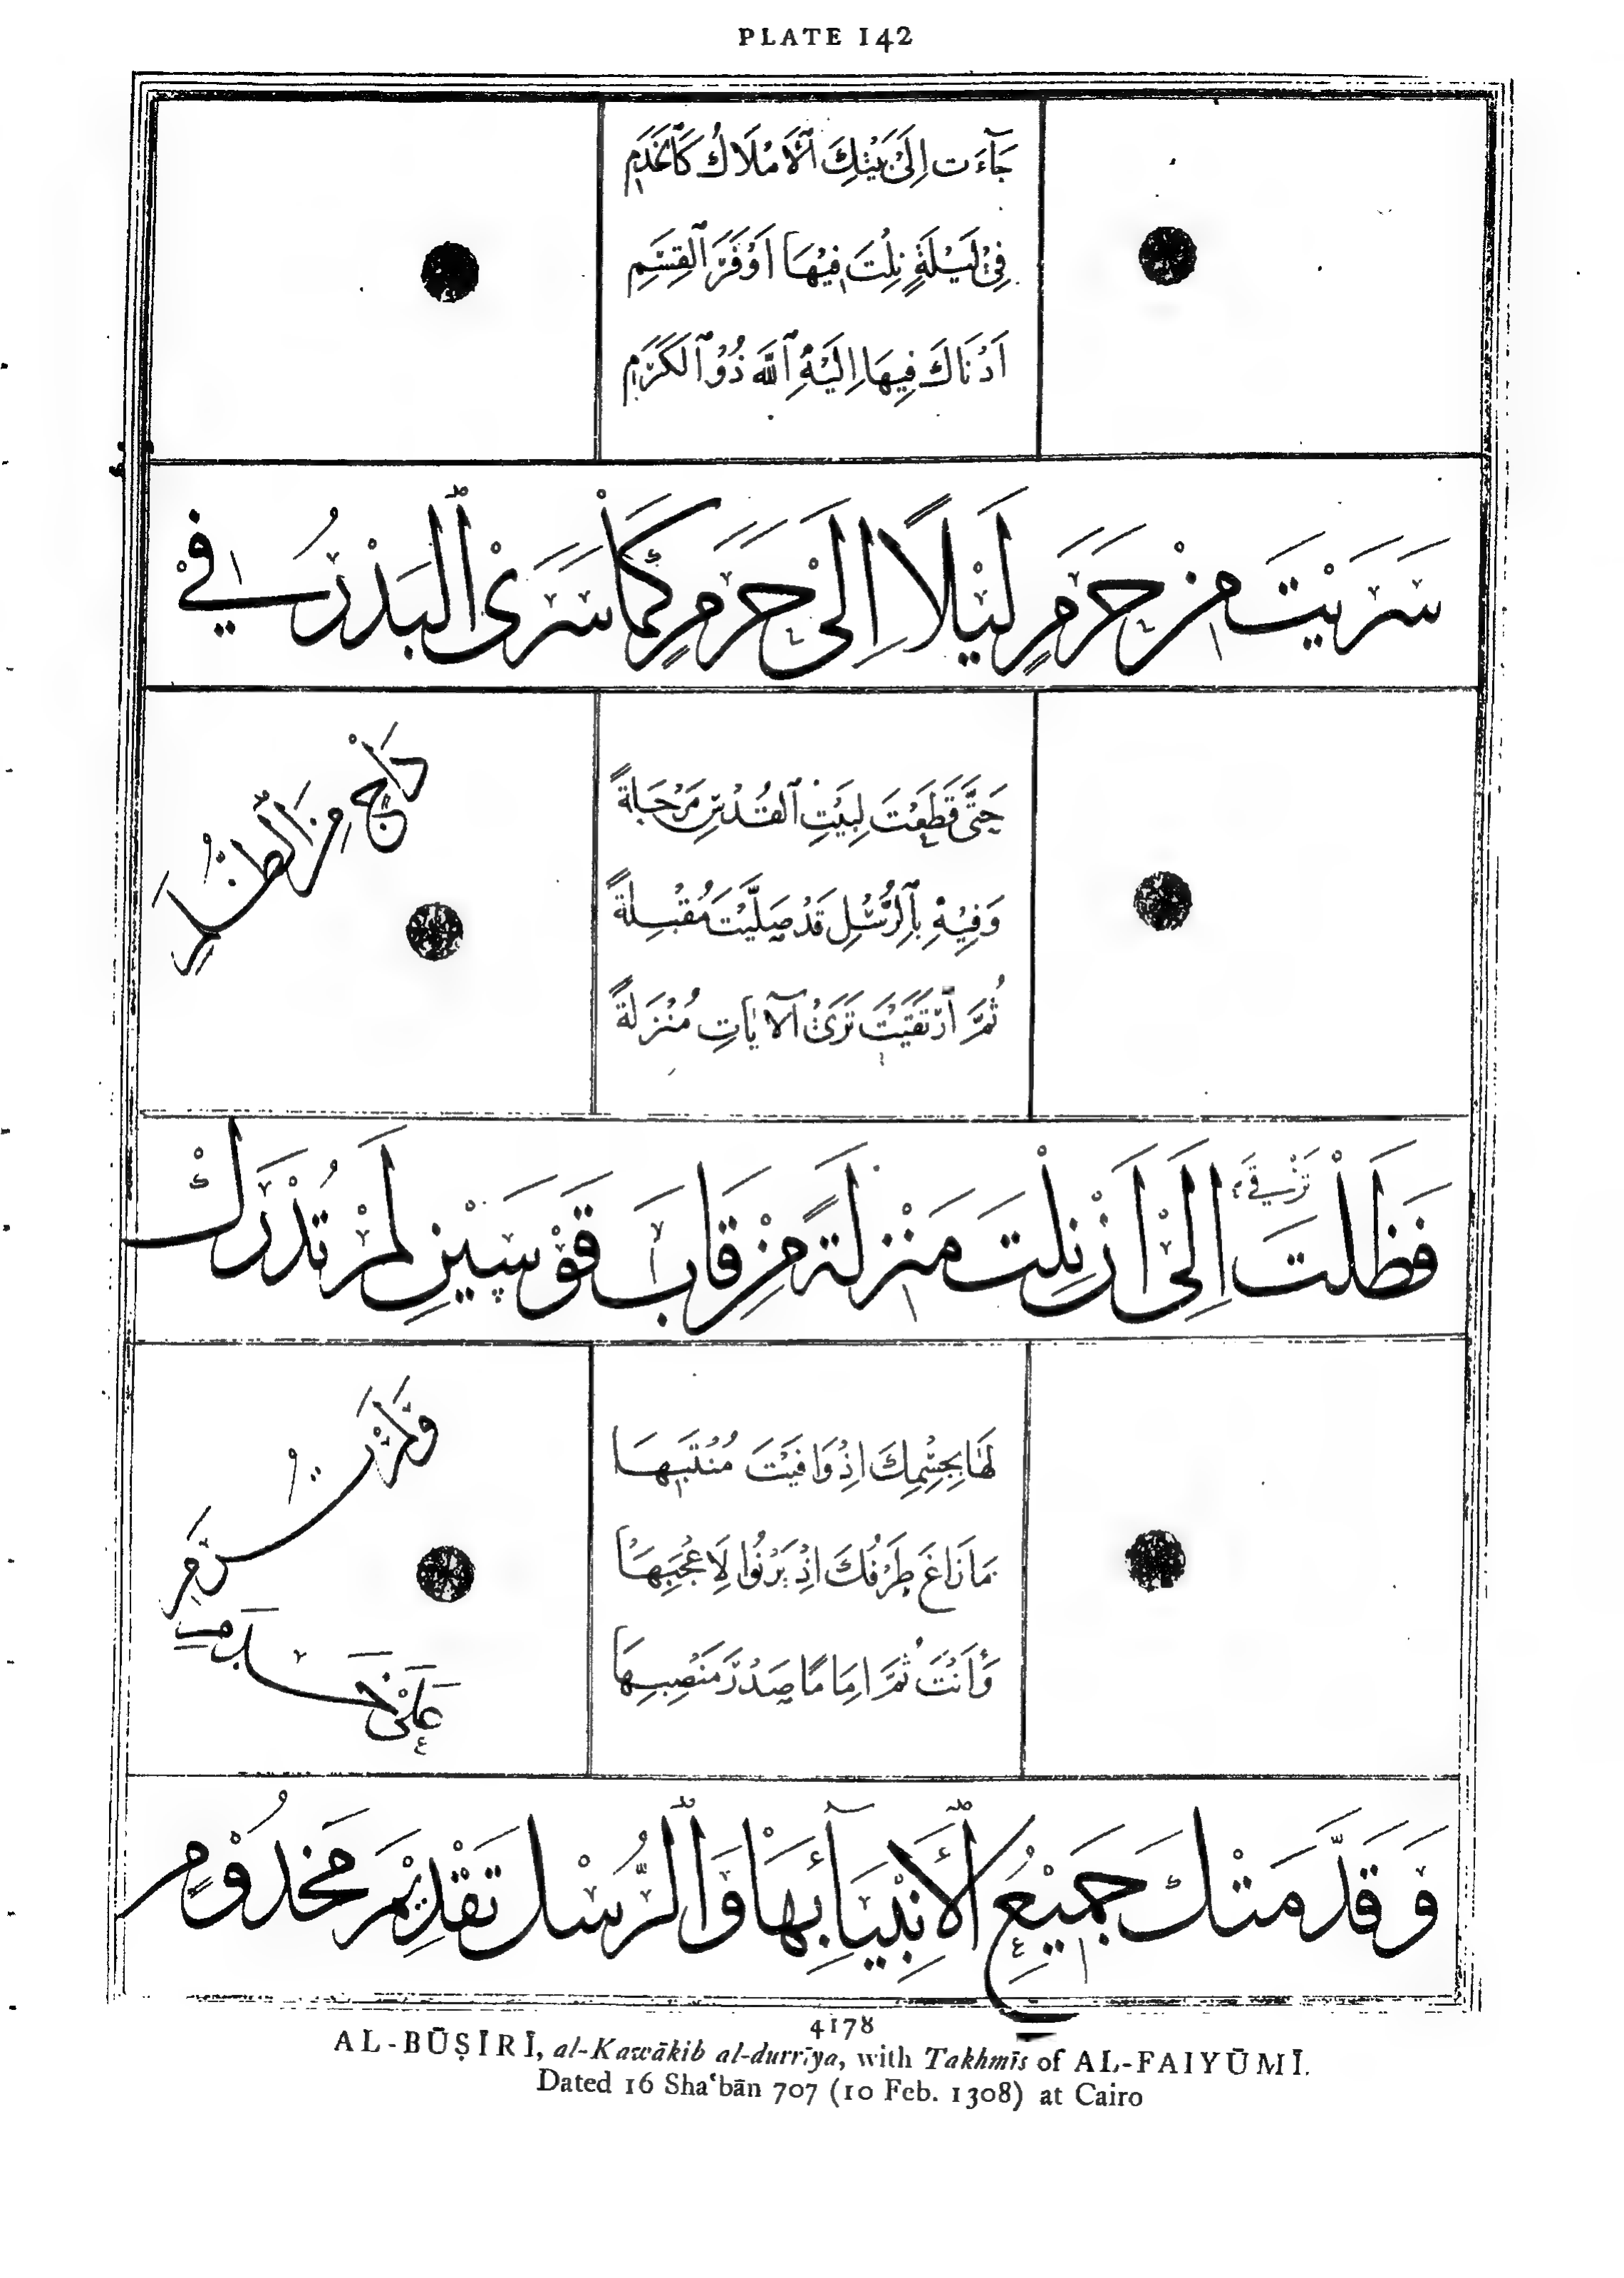 PLATE 142
جَآءَت اِلَىْ بَيْتِكَ ٱلْأَمْلَاكُ كَٱلْخَدَمِ
فِىْ لَيْلَةٍ نِلْتَ فِيْهَا اَوْفَرَ ٱلْقِسَمِ
اَدْنَاكَ فِيهَا اِلَيْهِ ٱللَّه ذُوْ ٱلْكَرَمِ
سَرَيْتَ مِنْ حَرَمٍ لَيْلًا اِلَىْ حَرَمٍ كَمَا سَرَىْ ٱلْبَدْرُ فِىْ
دَاجٍ مِنَ ٱلظُّلَمِ
حَتَّى قَطَعْتَ لِبَيْتِ ٱلْقُدْسِ مَرْحَلَةً
وَفِيْهِ بِٱلرُّسْلِ قَدْ صَلَّيْتَ مُقْبِلَةً
ثُمَّ ٱرْتَقَيْتَ تَرَىْ ٱلآيَاتِ مُنْزَلَةً
فَظَلْتَ تَرْقَى اِلَىْ اَنْ نِلْتَ مَنْزِلَةً مِنْ قَابَ قَوْسَيْنِ لَمْ تُدْرَكْ
وَلَمْ تُرَمِ
لَهَا بِجِسْمِكَ اِذْ وَافَيْتَ مُنْتَبِهَا
مَا زَاغَ طَرْفُكَ اِذْ يَرْنُوا لِاَعْجَبِهَا
وَأَنْتَ ثُمَّ اِمَامًا صَدْرَ مَنْصِبِهَا
وَقَدَّمَتْكَ جَمِيْعُ ٱلْأَنْبِيَآءِ بِهَا وَٱلرُّسْلِ تَقْدِيْمَ مَخْدُوْمٍ
عَلَىْ خَدَمِ
4178
AL-BŪṢĪRĪ, al-Kawākib al-durrīya, with Takhmīs of AL-FAIYŪMĪ.
Dated 16 Shaʿbān 707 (10 Feb. 1308) at Cairo